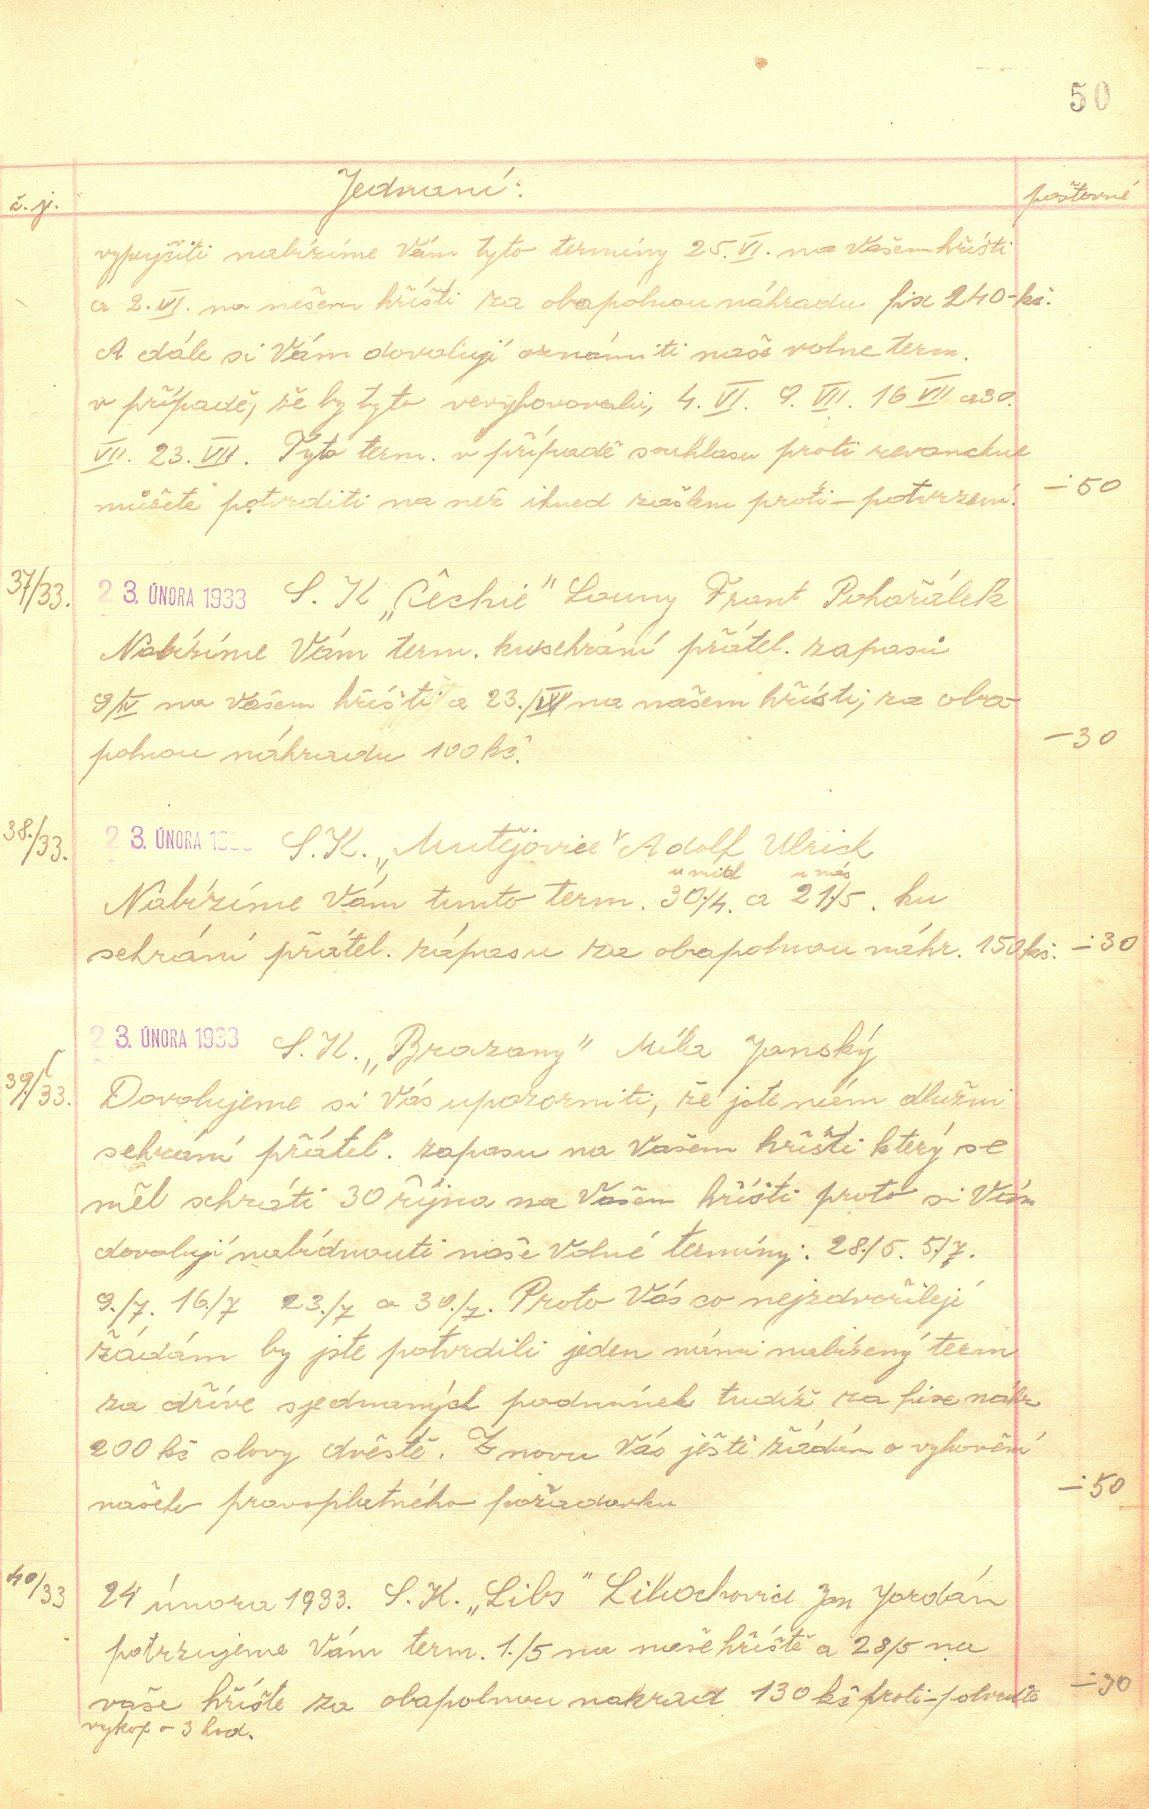 50
č. j. Jednaní: poštovné
vypujčiti nabízíme Vám tyto termíny 25. VI. na Vašem hřišti
a 2. VI. na našem hřišti za obapolnou náhradu fix 240 - kč.
A dále si Vám dovoluji oznámiti naše volne term.
v případě, že by tyto nevyhovovali, 4. VI. 9. VII. 16 VII a 30.
VII. 23. VII. Tyto term. v případě souhlasu proti revanchue
můšete potvrditi na než ihned zašlem proti - potvrzení. -50
37/33. 23. ÚNORA 1933 S. K. „Čechie" Louny Frant Pohořálek
Nabízíme Vám term. ku sehrání přátel. zapasů
9/IV na Vašem hřišti a 23./ na našem hřišti, za oba
polnou náhradu 100 kč. -30
38./33. 23. ÚNORA 1933 S. K. „Mutějovice" Adolf Ulrich
u nás
Nabízíme Vám tímto term. 30./4. a 21./5. ku
sehrání přátel. zápasu za obapolnou náhr. 150 kč. -30
23. ÚNORA 1933 S. K. „Brozany" Míla Janský
39./33. Dovolujeme si Vás upozorniti, že jste nám dlužni
sehrání přátel. zapasu na Vašem hřišti který se
měl sehráti 30 října na Vašem hřišti proto si Vám
dovoluji nabídnouti naše Volné termíny: 28./5. 5./7.
9./7. 16./7 23./7 a 30./7. Proto Vás co nejzdvořileji
žádám by jste potvrdili jeden námi nabízený term
za dříve sjednaných podmínek tudíž za fixe náhr
200 kč slovy dvěstě. Znovu Vás ještě žádám o vyhovění
našeho pravoplatného požadavku -50
40/33 24 února 1933. S. K. „Libs" Libochovice Jan Jordán
potrzujeme Vám term. 1./5 na naše hřiště a 28/5 na
vaše hříšte za obapolnou nahrad 130 kč proti - potvrďte -30
vykop o 3 hod.